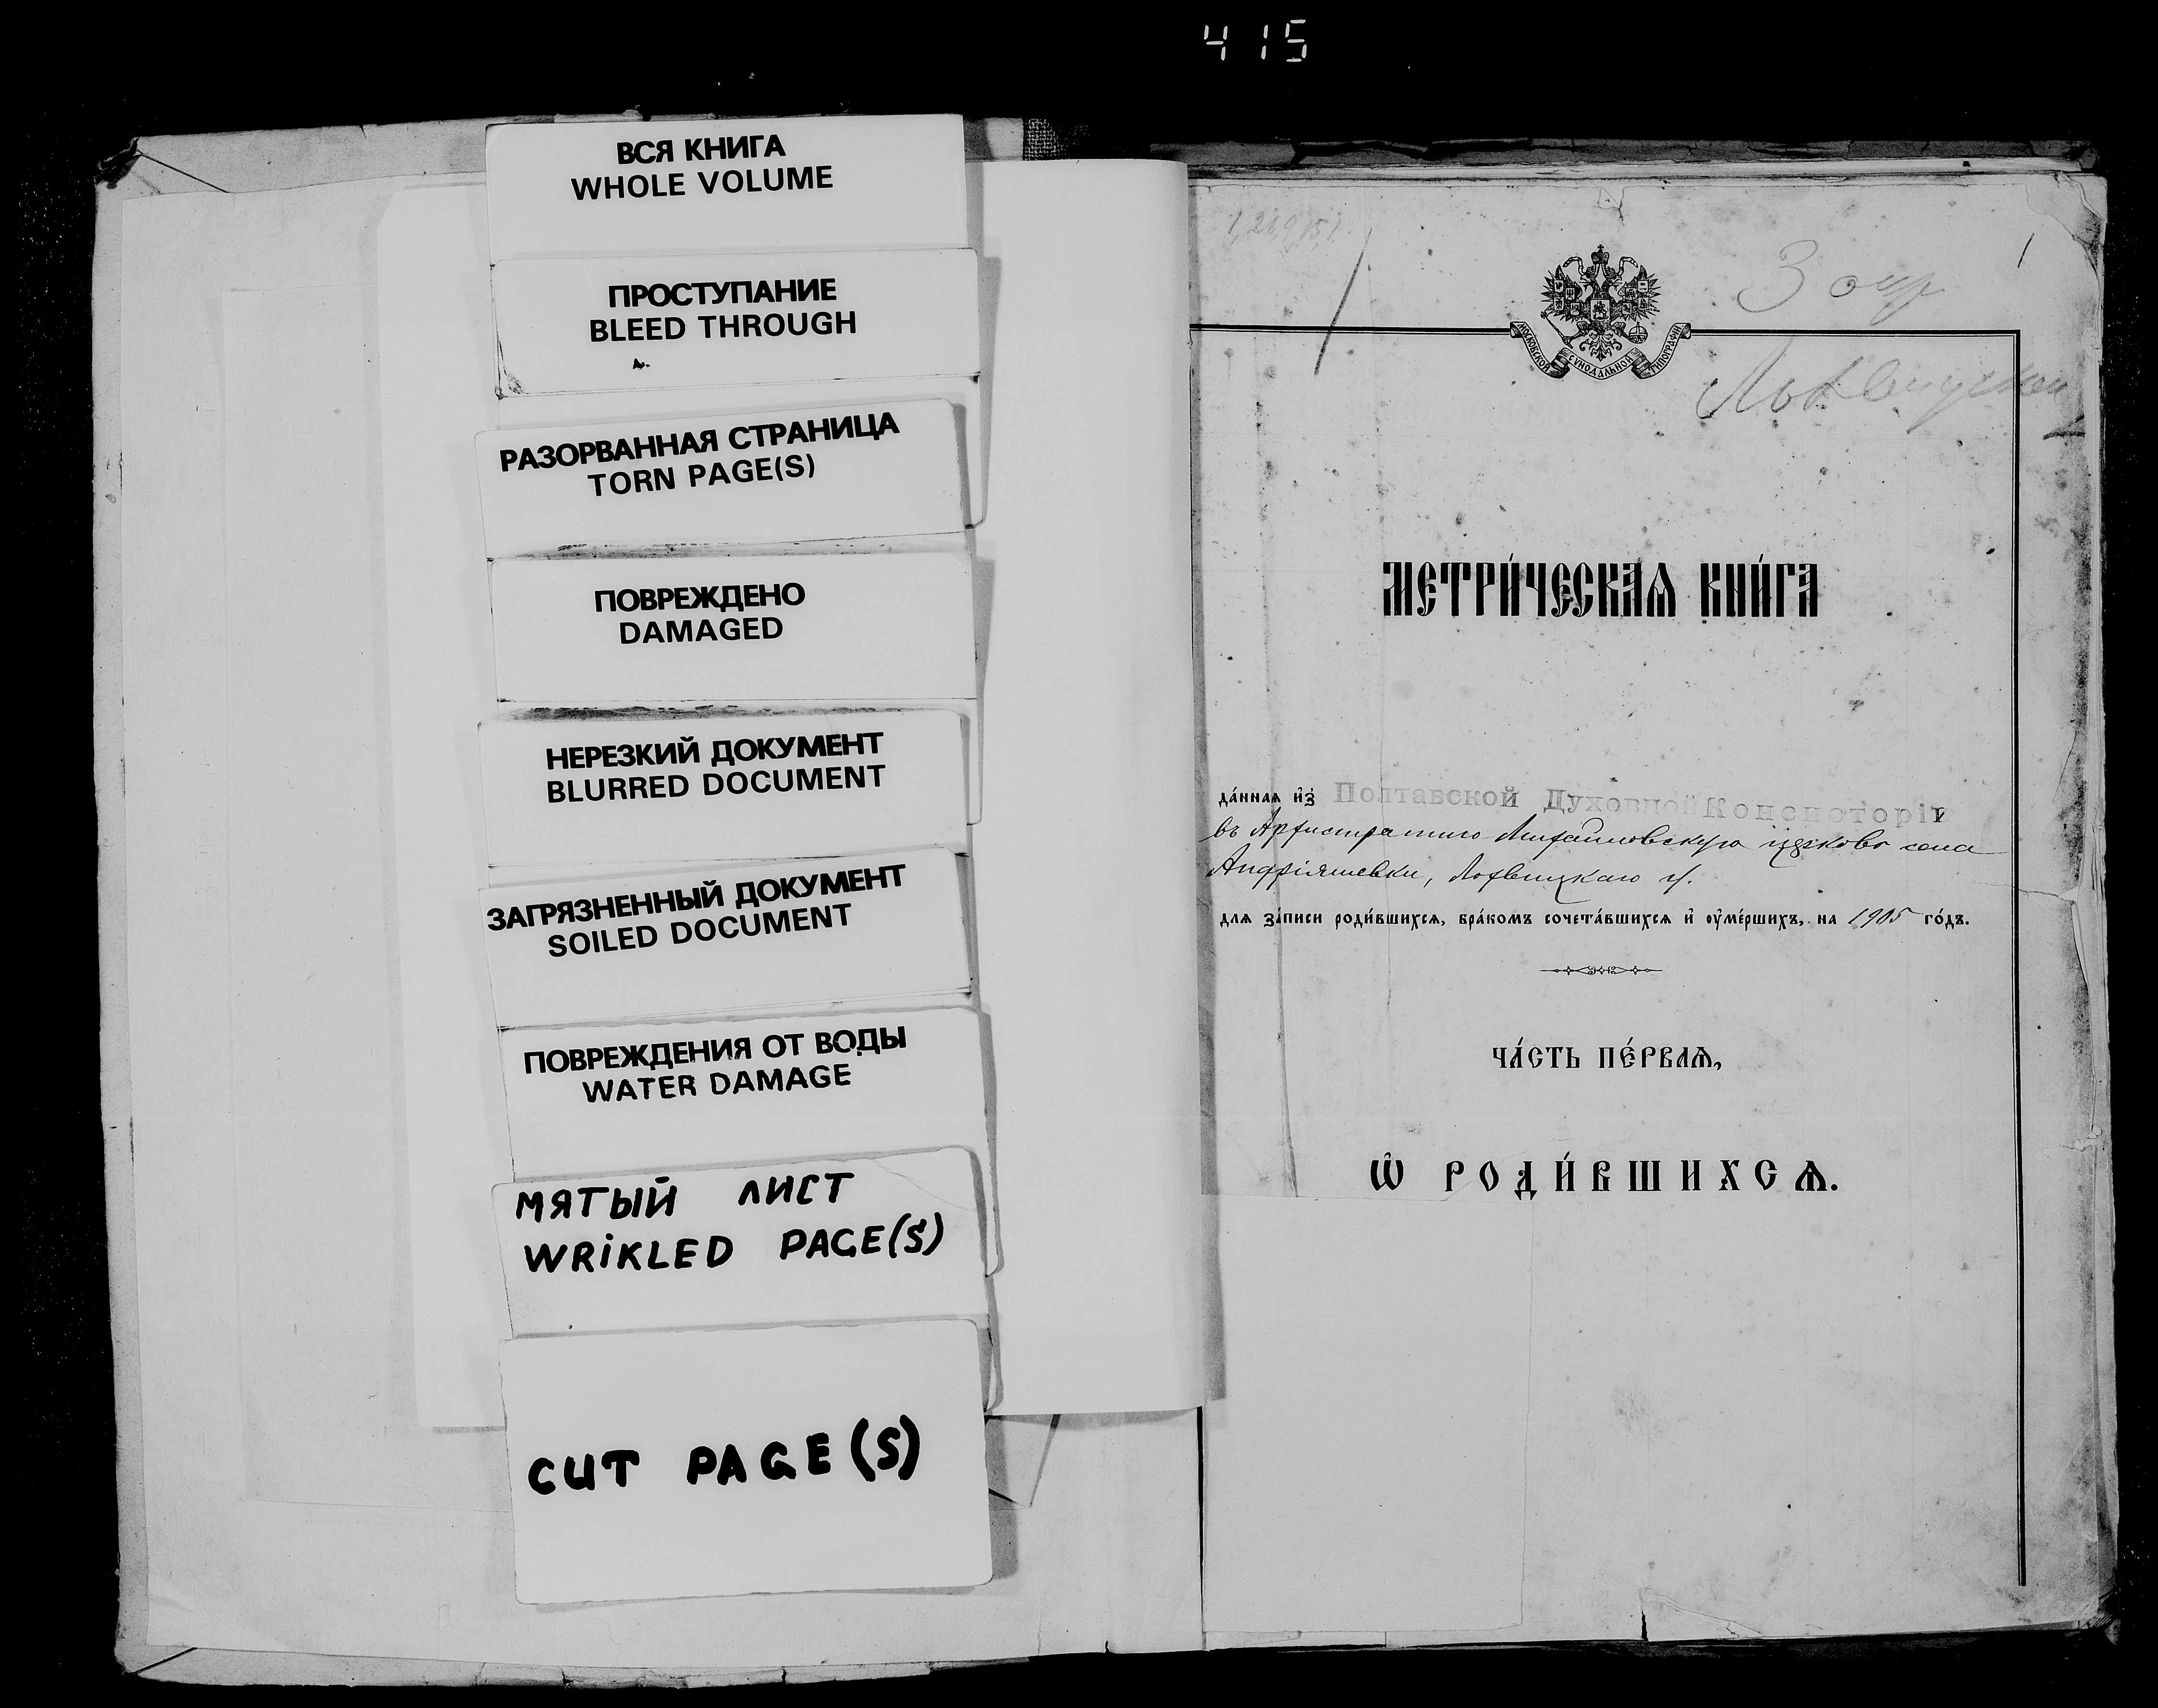 415
ВСЯ КНИГА
WHOLE VOLUME
ПРОСТУПАНИЕ
BLEED THROUGH
РАЗОРВАННАЯ СТРАНИЦА
TORN PAGE(S)
ПОВРЕЖДЕНО
DAMAGED
НЕРЕЗКИЙ ДОКУМЕНТ
BLURRED DOCUMENT
ЗАГРЯЗНЕННЫЙ ДОКУМЕНТ
SOILED DOCUMENT
ПОВРЕЖДЕНИЯ ОТ ВОДЫ
WATER DAMAGE
МЯТЫЙ ЛИСТ
WRiKLED PAGE(S)
CUT PAGE(S)
1
3 окр
МОСКОВСКОЙ СѴНОДАЛЬНОЙ ТИПОГРАФІИ
МЕТРИ́ЧЕСКАѦ КНИ́ГА
да́ннаѧ и҆з̾ Полтавской Духовной Консисторіи
въ Архистратиго-Михайловскую церковь села
Андріяшевки, Лохвицкаго у.
длѧ за́писи роди́вшихсѧ, бра́комъ сочета́вшихсѧ и҆ ѹ҆ме́ршихъ, на 1905 го́дъ.
ЧА́СТЬ ПЕ́РВАѦ,
Ѽ РОДИ́ВШИХСѦ.